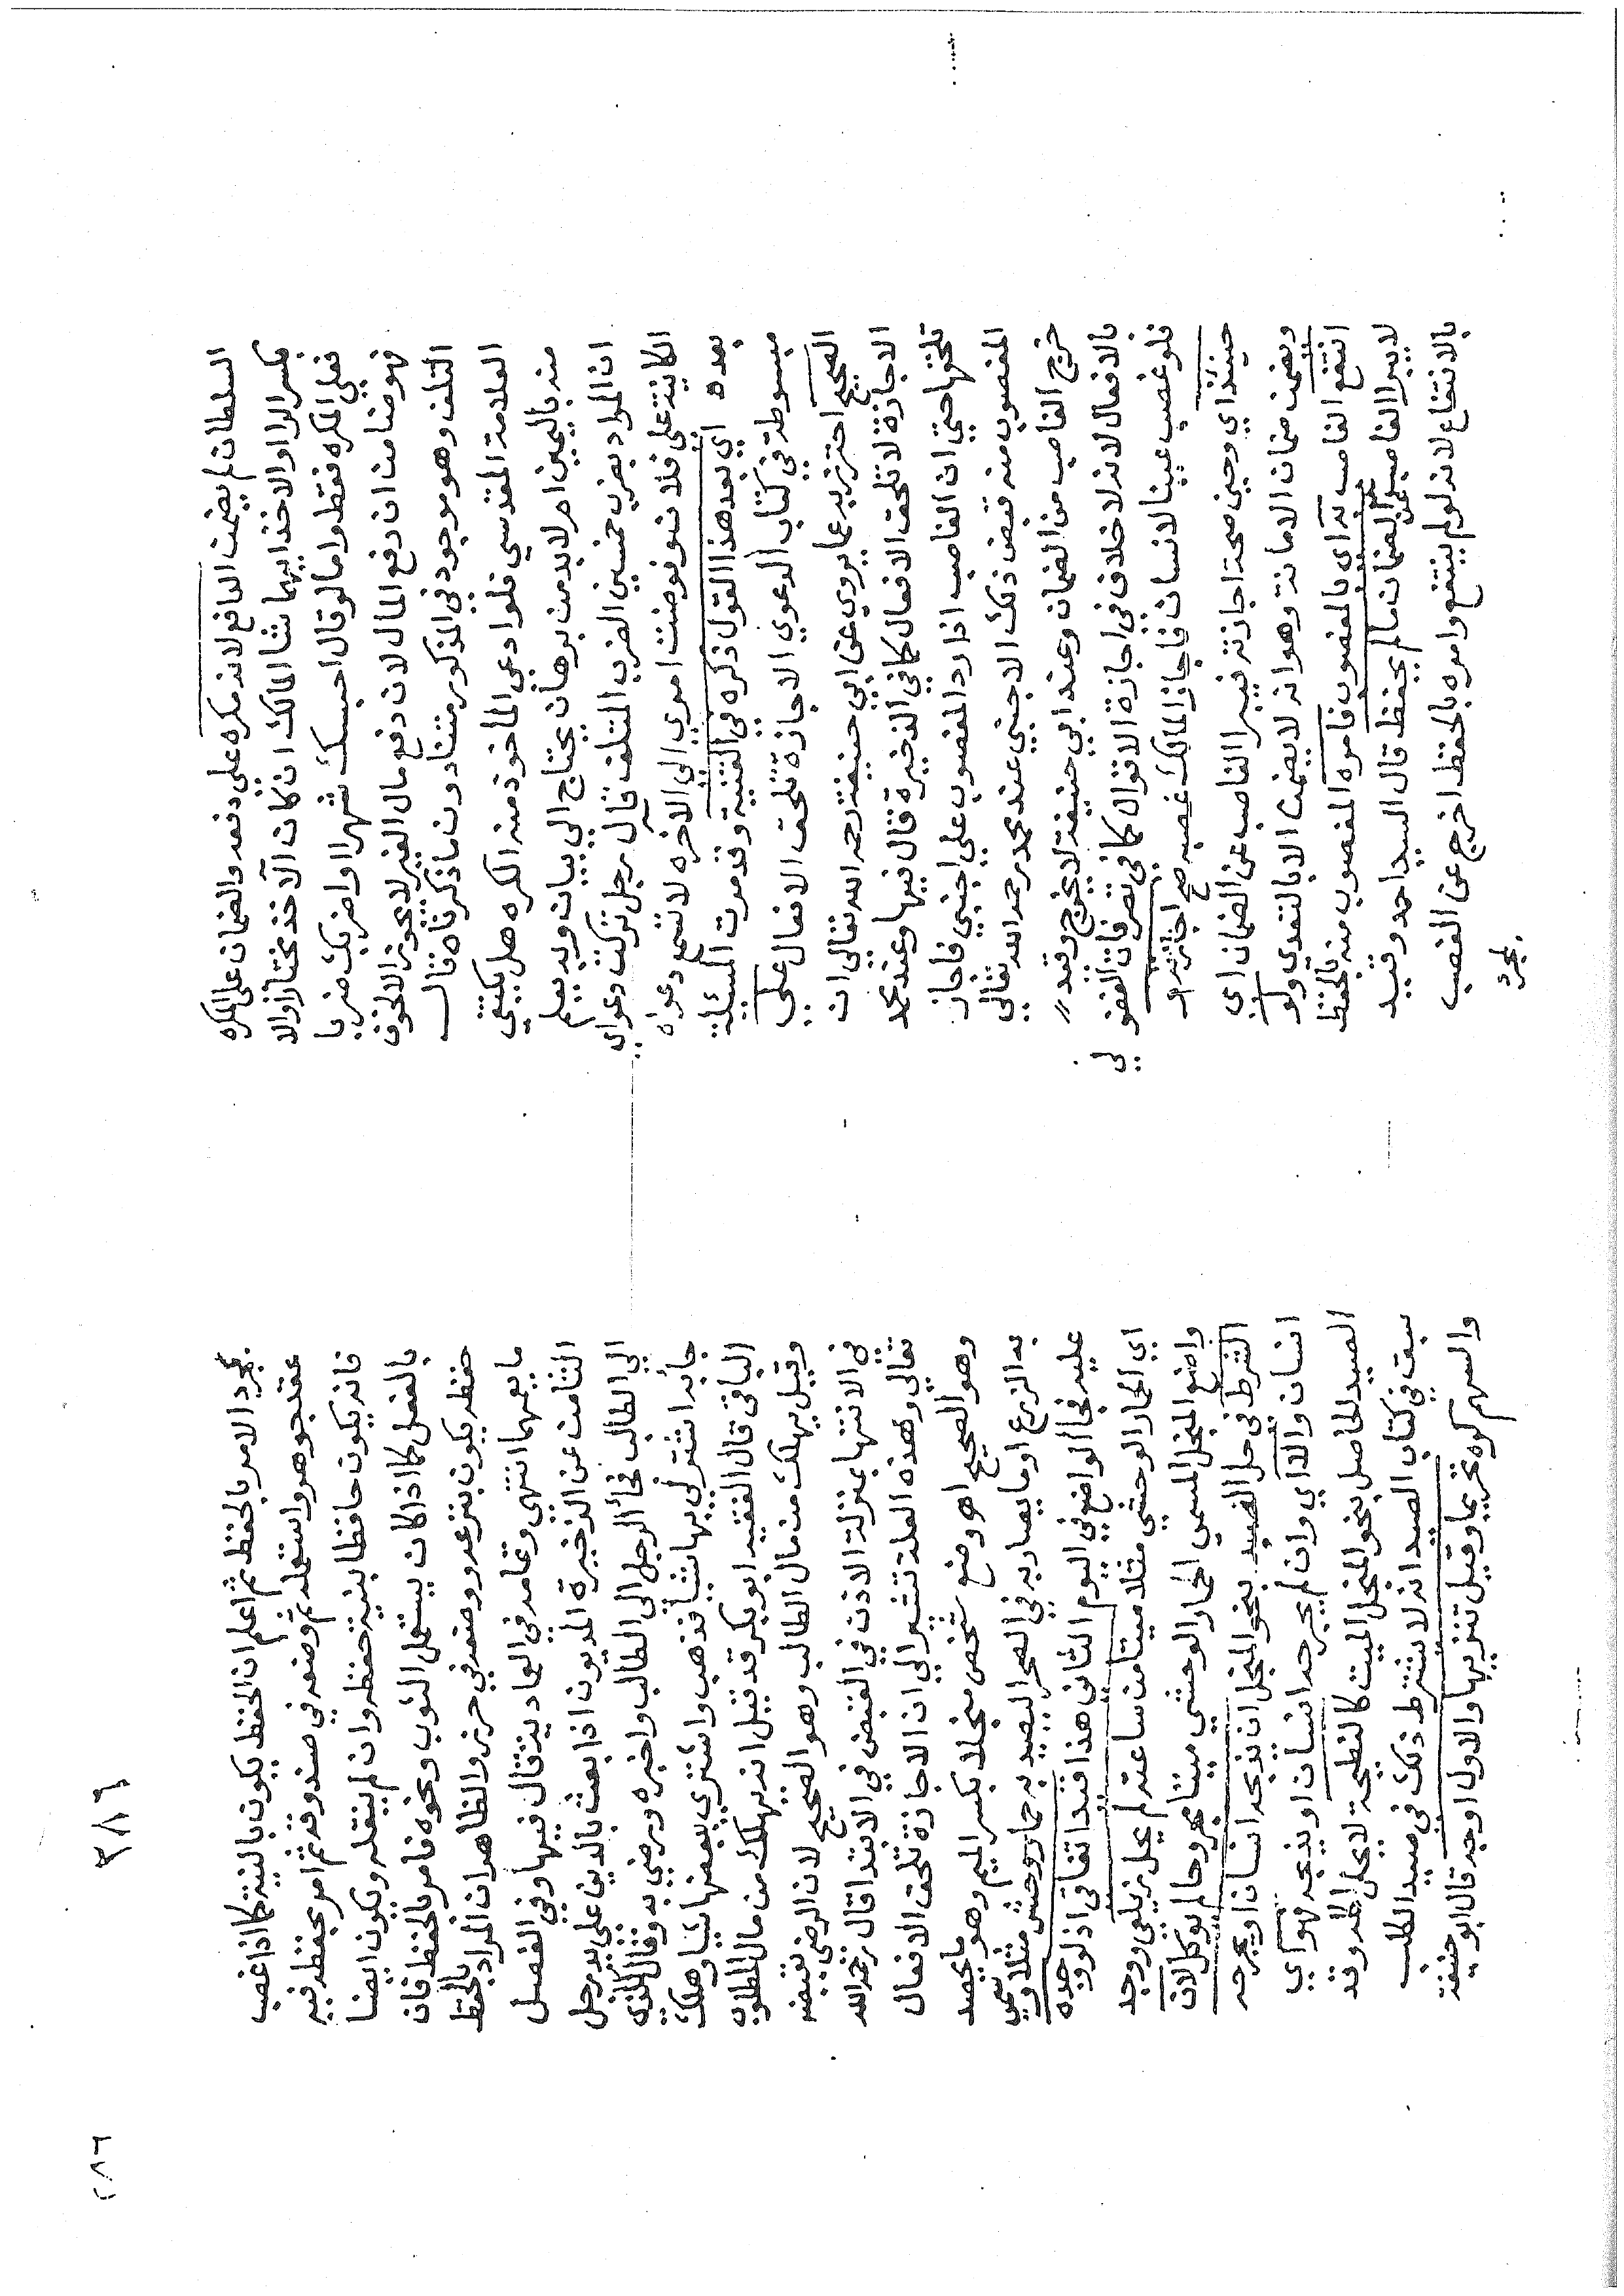 السلطان لم يضمن الدافع لانه مكره على دفعه والضمان على المكره
بكسر الراء او الاخذ ايهما شا المالك ان كان الآخذ مختارا والا
فعلى المكره فقط واما لو قال احبسك شهرا او اضربك ضربا
فهو ضامن ان دفع المال لان دفع مال الغير لا يجوز الا لخوف
التلف وهو موجود في المذكور متنا دون ما ذكرناه قال
العلامة المقدسي فلو ادعى الماخوذ منه الكره هل يكتفي
منه باليمين ام لابد من برهان يحتاج الي بيان وبه يعلم
ان المراد بضرب خمسين الضرب المتلف قال رجل تركت دعواي
الكاينة على فلان وفوضت امري الي الاخره لا تسمع دعواه
بعده اي بعد هذا القول ذكره في القنية وقد مرت المسئلة
مبسوطة في كتاب الدعوي الاجازة تلحق الافعال على
الصحيح احترز به عما يروي عن ابي حنيفة رحمه الله تعالى ان
الاجازة لا تلحق الافعال كما في الذخيرة قال فيها وعند محمد
تلحقها حتى ان الغاصب اذا رد المغصوب على اجنبي فاجاز
المغصوب منه قبض ذلك الاجنبي عند محمد رحمه الله تعالي
خرج الغاصب من الضمان وعند ابي حنيفة لا يخرج وقيد
بالافعال لانه لا خلاف في اجازة الاقوال كما في تصرفات الفضولي
فلو غصب عينا لانسان فاجاز المالك غصبه صح اجازته و
حينئذ اي وحين صحة اجازته فيبرا الغاصب عن الضمان اي
ويضمن ضمان الامانة وهو انه لا يضمن الا بالتعدي ولو
انتفع الغاصب به اي بالمغصوب فامره المغصوب منه بالحفظ
لا يبرا الغاصب عن الضمان ما لم يحفظ قال السيد احمد وقيد
بالانتفاع لانه لو لم ينتفع وامره بالحفظ اخرج عن الغصب
بمجرد
٣٨٦
٢٨٦
بمجرد الامر بالحفظ ثم اعلم ان الحفظ يكون بالنية كما اذا غصب
عقد جوهر واستعمله ثم وضعه في صندوقه ثم امر بحفظه فيه
فانه يكون حافظا بنية حفظه وان لم ينقله ويكون ايضا
بالفعل كما اذا كان يستعمل الثوب ونحوه فامر بالحفظ فان
حفظه يكون بنزعه ووضعه في حرز والظاهر ان المراد بالحفظ
ما يعمهما انتهى وتمامه في العمادية قال فيها وفي الفصل
الثامن عن الذخيرة المديون اذا بعث بالدين على يد رجل
الي الطالب فجا الرجل الى الطالب واخبره ورضي به وقال للذي
جا به اشتر لي بها شيا فذهب واشتري ببعضها شيا وهلك
الباقي قال الفقيه ابو بكر قد قيل انه يهلك من مال المطلوب
وقيل يهلك من مال الطالب وهو الصحيح لان الرضى بقبضه
في الانتها بمنزلة الاذن في القبض في الابتدا قال رحمه الله
تعالى وهذه العلة تشير الي ان الاجازة تلحق الافعال
وهو الصحيح اهـ وضع شخص منجلا بكسر الميم وهو ما يحصد
به الزرع او ما يصاد به في الصحرا ليصيد به حمار وحش مثلا وسمي
عليه فجا الواضع في اليوم الثاني هذا قيد اتفاقي اذ لو وجده
اي الحمار الوحشي مثلا ميتا من ساعته لم يحل زيلعي ووجد
واضع المنجل المسمي الحمار الوحشي ميتا مجروحا لم يوكل لان
الشرط في حل الصيد بنحو المنجل ان يذبحه انسان او يجرحه
انسان والا اي وان لم يجرحه انسان او يذبحه فهو اي
الصيد الحاصل بنحو المنجل الميت كالنطيحة لا يحل اهـ در وقد
سبق في كتاب الصيد انه لا يشترط ذلك في صيد الكلب
والسهم كره تحريما وقيل تنزيها والاول اوجه قال ابو حنيفة